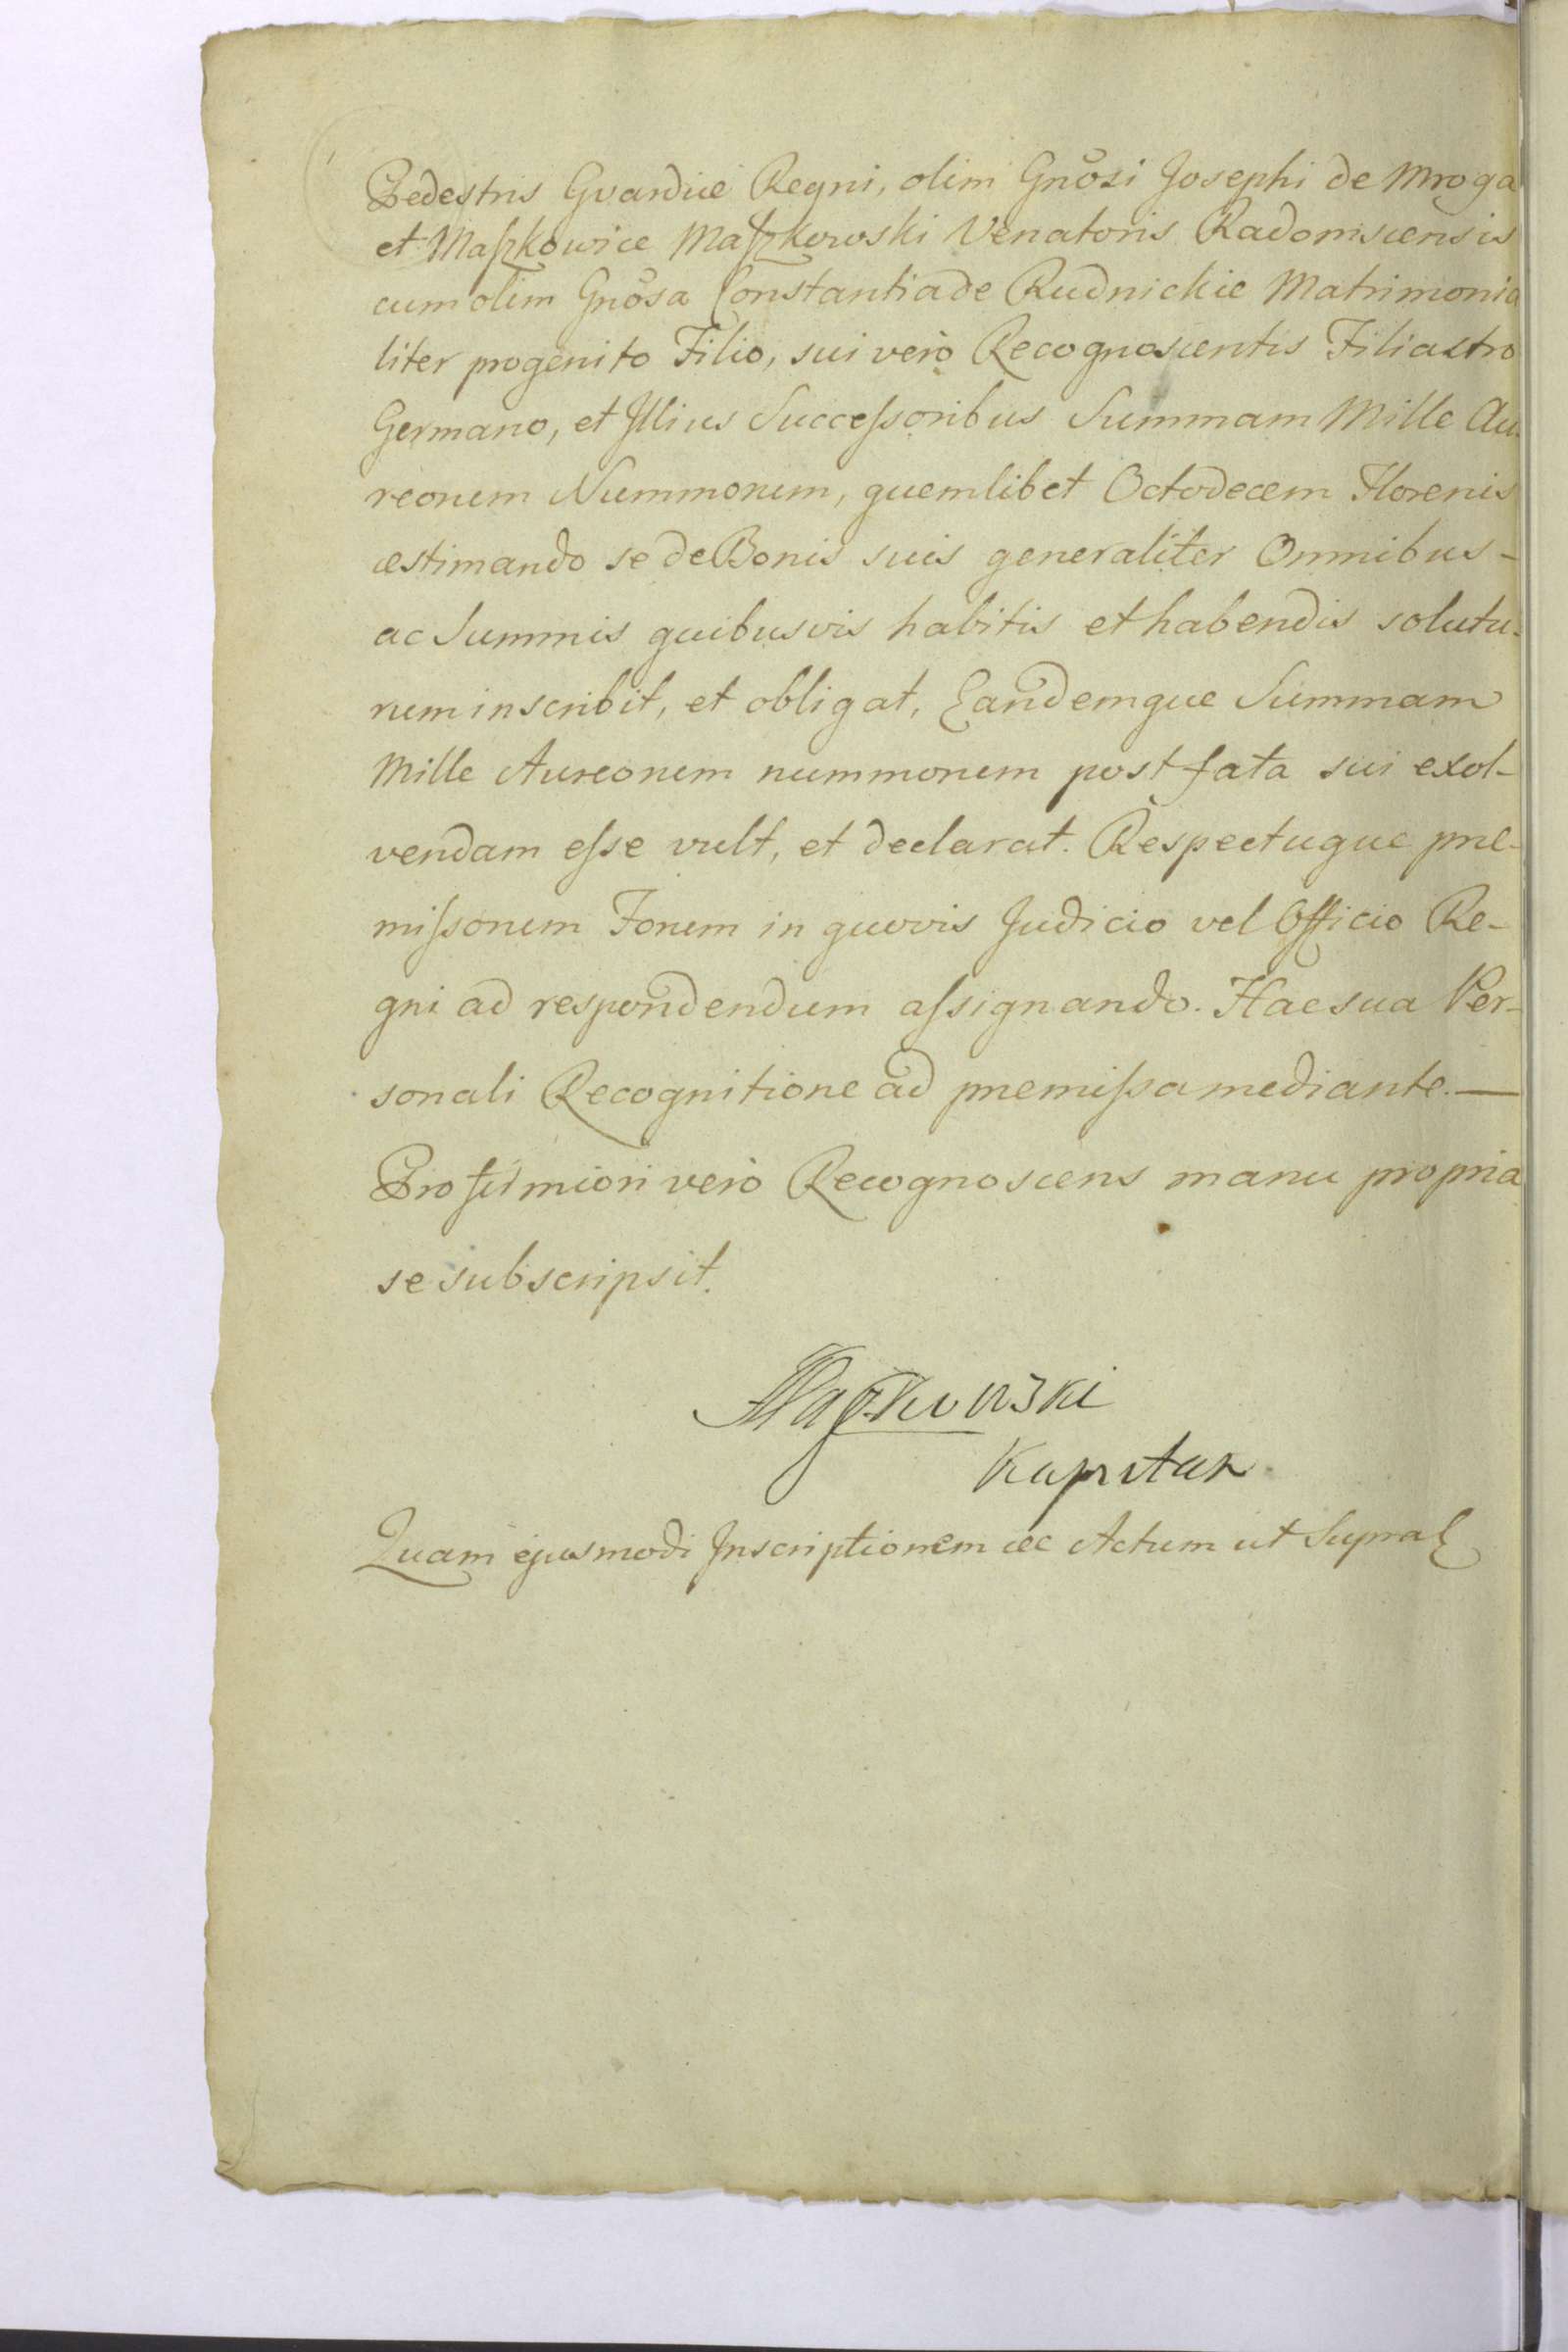 Pedestris Gvardiæ Regni, olim Gnosi Josephi de Mroga
et Maſzkowice Maſzkowski Venatoris Radomscensis
cum olim Gnosa Constantia de Rudnickie Matrimonia
liter progenito Filio, sui verò Recognoscentis Filiastro
Germano, et Illius Succeſsoribus Summam Mille Au-
reorum Nummorum, quemlibet Octodecem Florenis
æstimando se de Bonis suis generaliter Omnibus -
ac Summis quibusvis habitis et habendis solutu-
rum inscribit, et obligat, Eandemque Summam
Mille Aureorum nummorum post fata sui exol-
vendam eſse vult, et declarat. Respectuque præ-
miſsorum Forum in quovis Judicio vel Officio Re-
gni ad respondendum aſsignando. Hac sua Per-
sonali Recognitione ad præmiſsa mediante. —
Pro firmiori verò Recognoscens manu propria
se subscripsit.
Maſzkowski
Kapitan
Quam ejusmodi Inscriptionem ec Actum ut Supra